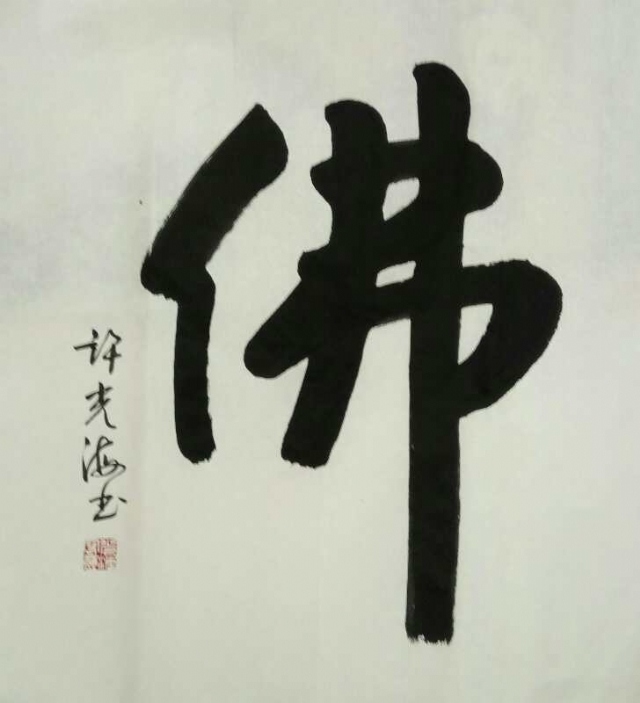 佛
许光海书